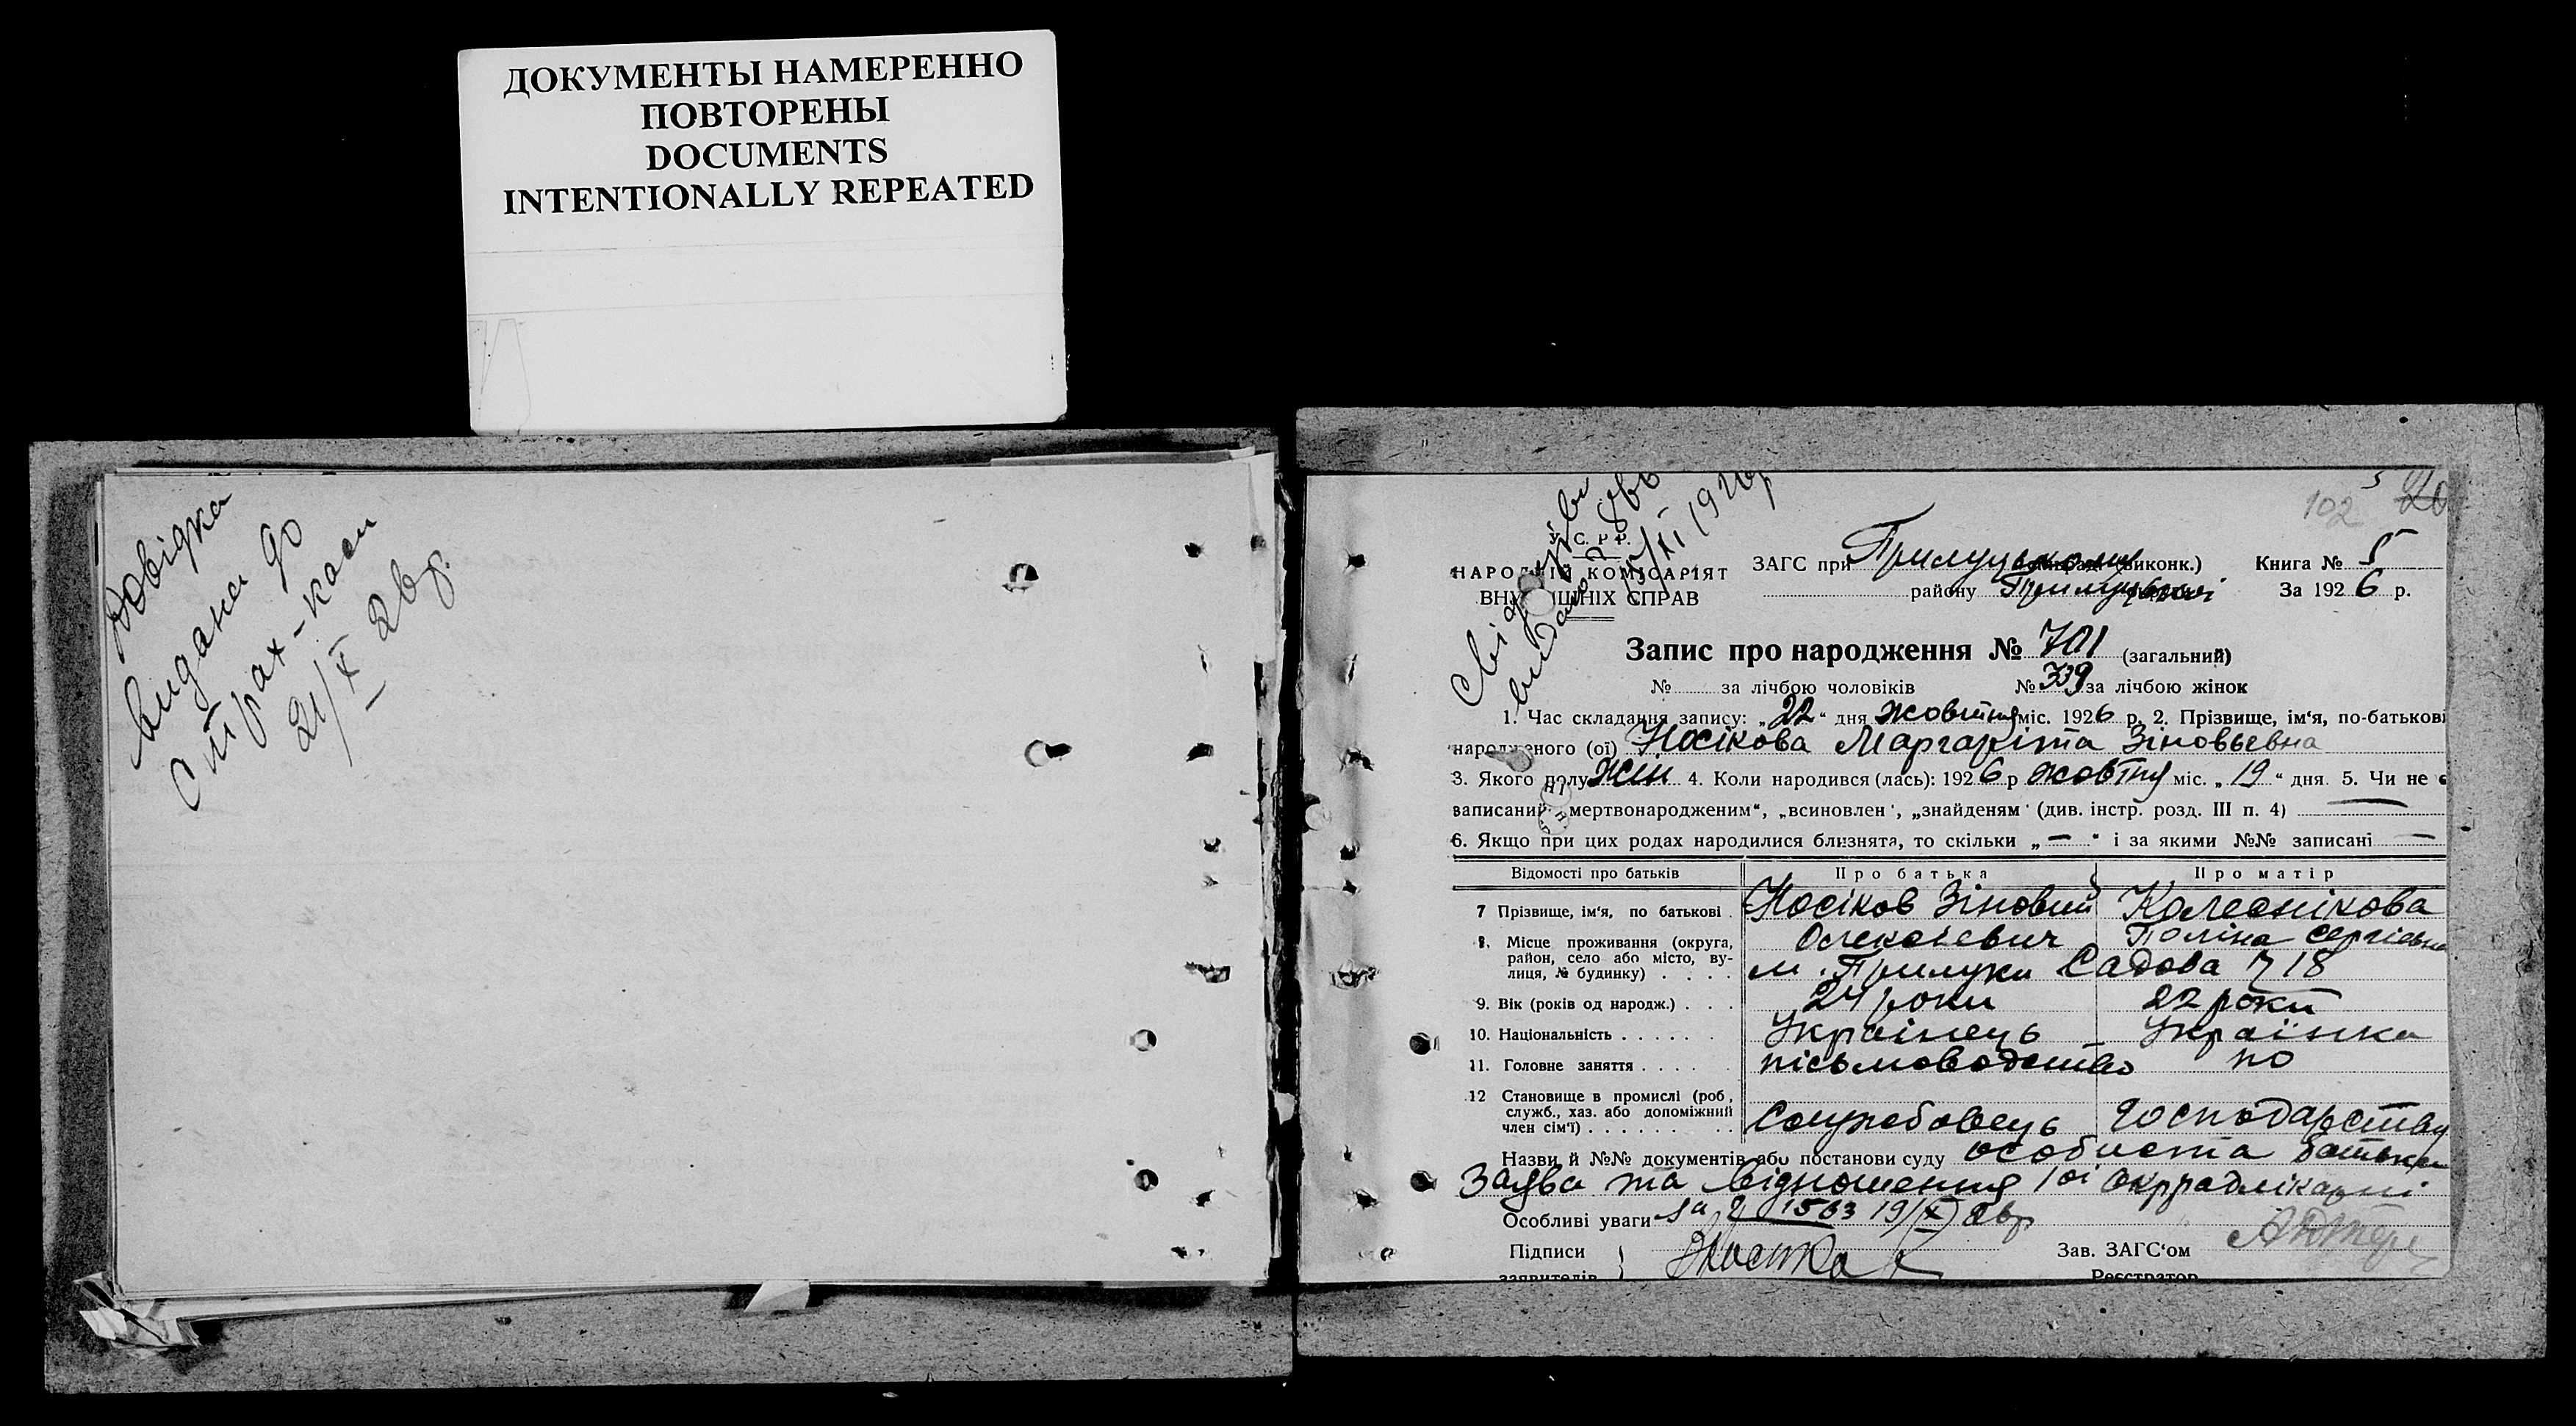 ДОКУМЕНТЫ НАМЕРЕННО
ПОВТОРЕНЫ
DOCUMENTS
INTENTIONALLY REPEATED
Довідка
видана до
страх-каси
21/X 26р.
102 5
Свідоцтво
видано
XI 1926р
У. С. Р Р.
НАРОДНІЙ КОМІСАРІЯТ
ВНУТРІШНІХ СПРАВ
ЗАГС при Прилуцькому (виконк.)
району Прилуцької
Книга № 5
За 1926 р.
Запис про народження № 701 (загальний)
№ за лічбою чоловіків № 339 за лічбою жінок
1. Час складання запису: „22“ дня жовтня міс. 1926 р. 2. Прізвище, ім‘я, по-батькові
народженого (ої) Носікова Маргаріта Зіновьевна
3. Якого полу Жін 4. Коли народився (лась): 1926 р жовтня міс. „19“ дня. 5. Чи не
записаний „мертвонародженим“, „всиновлен‘, „знайденям‘ (див. інстр. розд. III п. 4) —
6. Якщо при цих родах народилися близнята, то скільки „—“ і за якими №№ записані —
Відомості про батьків Про батька Про матір
7 Прізвище, ім‘я, по батькові . Носіков Зіновий Колеснікова
Олексіевич Поліна Сергіевна
8. Місце проживання (округа,
район, село або місто, ву-
лиця, № будинку) . . . . м. Прилуки Садова 18
9. Вік (років од народж.) . . . 24 роки 22 роки
10. Національність . . . . . . Українець Українка
11. Головне заняття . . . . . пісьмоводство по
12 Становище в промислі (роб,
служб., хаз. або допоміжний
член сім‘ї) . . . . . . . . Службовець господарству
Назви й №№ документів або постанови суду особиста батька
Заява та відношення 1ої Окррадлікарні
Особливі уваги за № 1563 19/X 26р
Підписи
заявителів
Зав. ЗАГС‘ом
Реєстратор